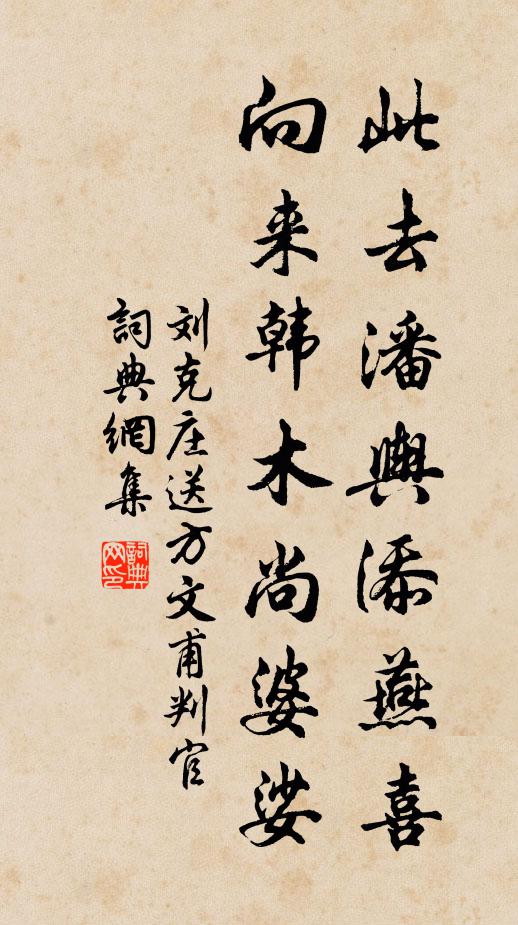 此去潘輿添燕喜
向来韩木尚婆娑
刘克庄送方文甫判官
詞典網集
詞典网印